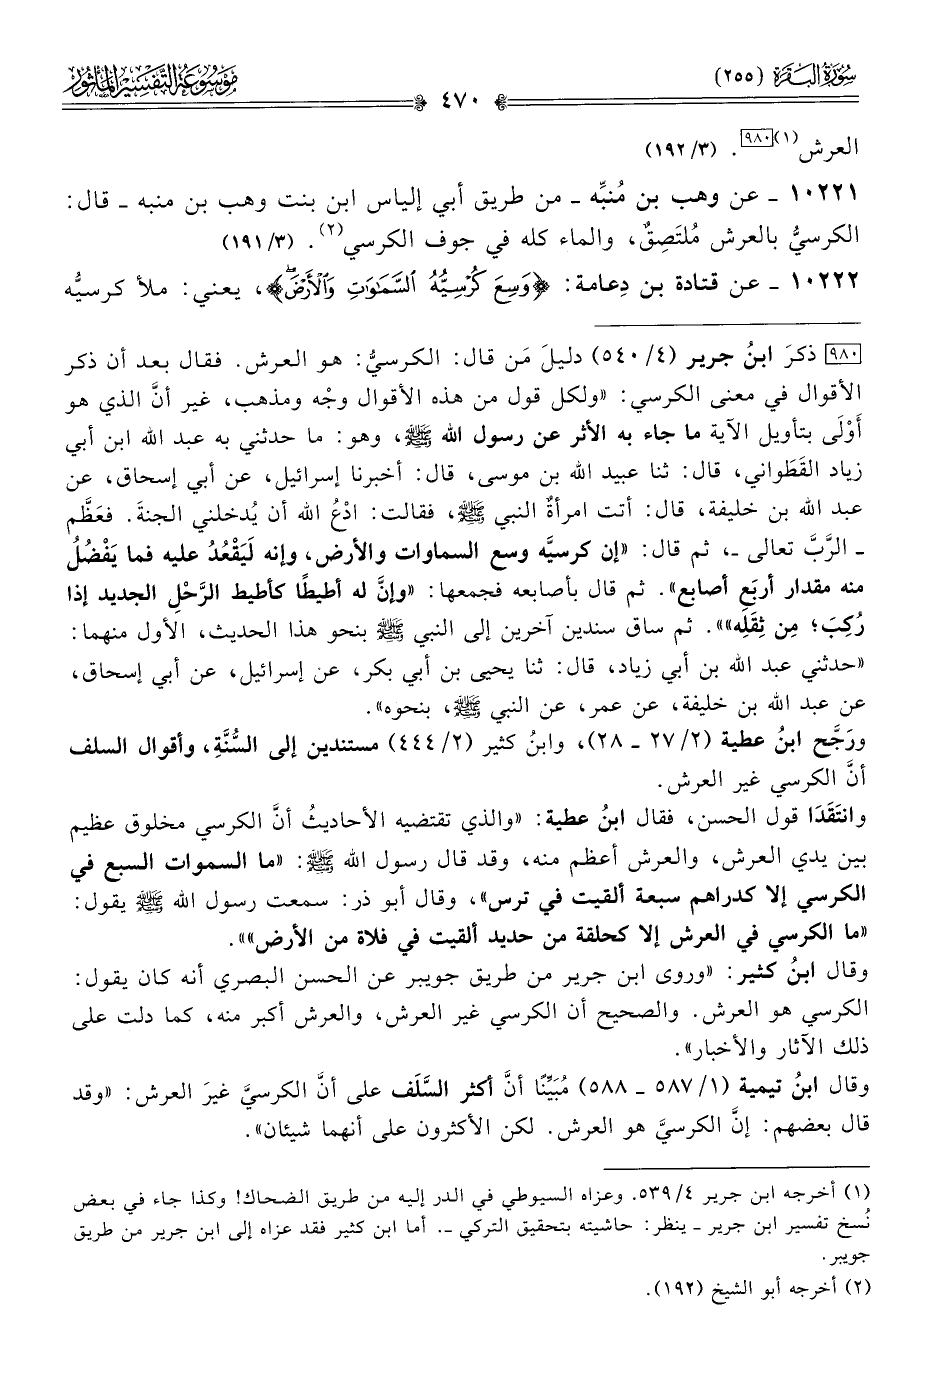 سُورَةُ البَقَرَةِ (٢٥٥)
٤٧٠
مَوْسُوعَةُ التَّفْسِيرِ المَأْثُور
العرش(١)[٩٨٠]. (٣/ ١٩٢)
١٠٢٢١ ـ عن وهب بن مُنبِّه ـ من طريق أبي إلياس ابن بنت وهب بن منبه ـ قال:
الكرسيُّ بالعرش مُلتَصِقٌ، والماء كله في جوف الكرسي(٢). (٣/ ١٩١)
١٠٢٢٢ ـ عن قتادة بن دِعامة: ﴿وَسِعَ كُرْسِيُّهُ السَّمَٰوَٰتِ وَالْأَرْضَۖ﴾، يعني: ملأ كرسيُّه
[٩٨٠] ذكرَ ابنُ جرير (٤/ ٥٤٠) دليلَ مَن قال: الكرسيُّ: هو العرش. فقال بعد أن ذكر
الأقوال في معنى الكرسي: «ولكل قول من هذه الأقوال وجْه ومذهب، غير أنَّ الذي هو
أَوْلَى بتأويل الآية ما جاء به الأثر عن رسول الله ﷺ، وهو: ما حدثني به عبد الله ابن أبي
زياد القَطَواني، قال: ثنا عبيد الله بن موسى، قال: أخبرنا إسرائيل، عن أبي إسحاق، عن
عبد الله بن خليفة، قال: أتت امرأةٌ النبي ﷺ، فقالت: ادْعُ الله أن يُدخلني الجنةَ. فعَظَّم
ـ الرَّبَّ تعالى ـ، ثم قال: «إن كرسيَّه وسع السماوات والأرض، وإنه لَيَقْعُدُ عليه فما يَفْضُلُ
منه مقدار أربَع أصابع». ثم قال بأصابعه فجمعها: «وإنَّ له أطيطًا كأطيط الرَّحْلِ الجديد إذا
رُكِبَ؛ مِن ثِقَلِه»». ثم ساق سندين آخرين إلى النبي ﷺ بنحو هذا الحديث، الأول منهما:
«حدثني عبد الله بن أبي زياد، قال: ثنا يحيى بن أبي بكر، عن إسرائيل، عن أبي إسحاق،
عن عبد الله بن خليفة، عن عمر، عن النبي ﷺ، بنحوه».
ورَجَّح ابنُ عطية (٢/ ٢٧ ـ ٢٨)، وابنُ كثير (٢/ ٤٤٤) مستندين إلى السُّنَّةِ، وأقوال السلف
أنَّ الكرسي غير العرش.
وانتَقَدَا قول الحسن، فقال ابنُ عطية: «والذي تقتضيه الأحاديثُ أنَّ الكرسي مخلوق عظيم
بين يدي العرش، والعرش أعظم منه، وقد قال رسول الله ﷺ: «ما السموات السبع في
الكرسي إلا كدراهم سبعة ألقيت في ترس»، وقال أبو ذر: سمعت رسول الله ﷺ يقول:
«ما الكرسي في العرش إلا كحلقة من حديد ألقيت في فلاة من الأرض»».
وقال ابنُ كثير: «وروى ابن جرير من طريق جويبر عن الحسن البصري أنه كان يقول:
الكرسي هو العرش. والصحيح أن الكرسي غير العرش، والعرش أكبر منه، كما دلت على
ذلك الآثار والأخبار».
وقال ابنُ تيمية (١/ ٥٨٧ ـ ٥٨٨) مُبَيِّنًا أنَّ أكثر السَّلَف على أنَّ الكرسيَّ غيرَ العرش: «وقد
قال بعضهم: إنَّ الكرسيَّ هو العرش. لكن الأكثرون على أنهما شيئان».
(١) أخرجه ابن جرير ٤/ ٥٣٩. وعزاه السيوطي في الدر إليه من طريق الضحاك! وكذا جاء في بعض
نُسخ تفسير ابن جرير ـ ينظر: حاشيته بتحقيق التركي ـ. أما ابن كثير فقد عزاه إلى ابن جرير من طريق
جويبر.
(٢) أخرجه أبو الشيخ (١٩٢).